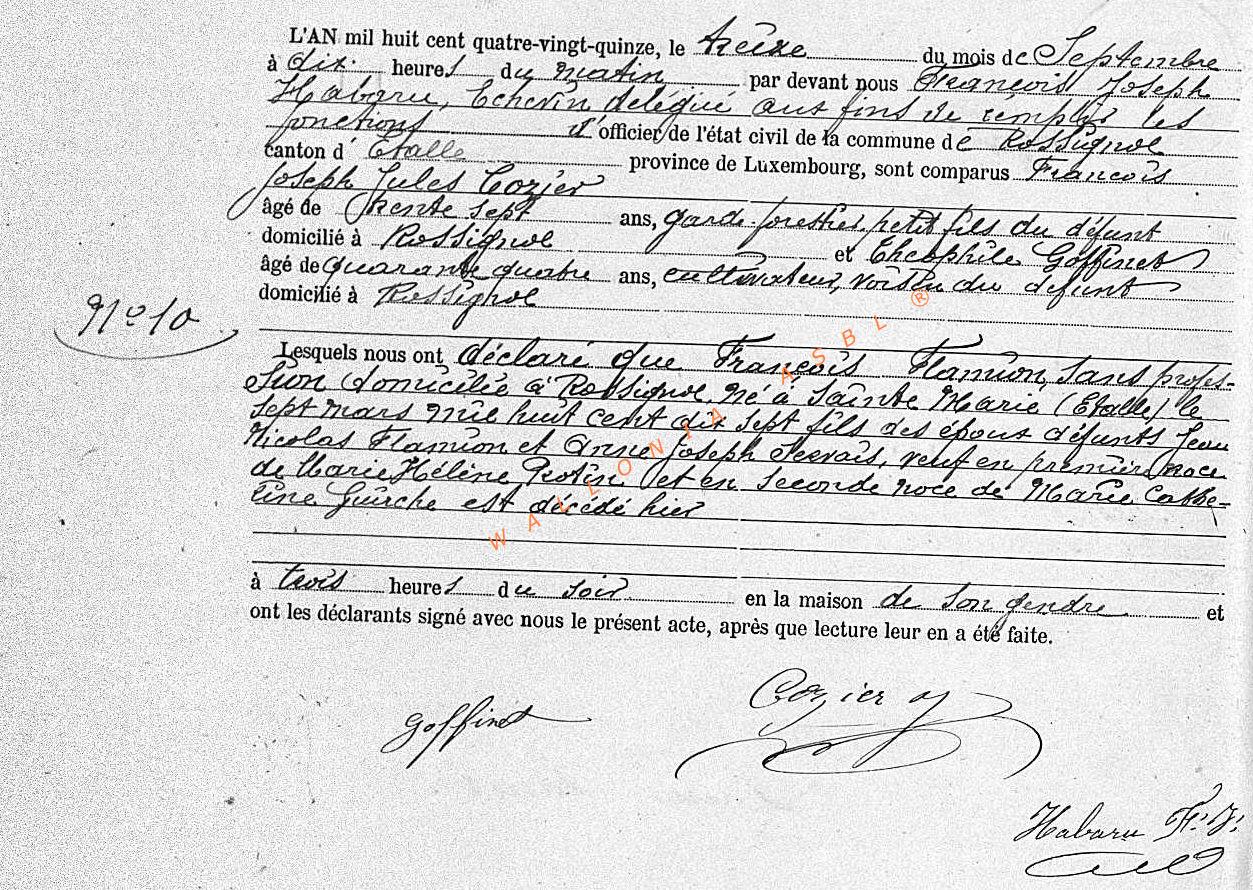 L'AN mil huit cent quatre-vingt-quinze, le treize du mois de Septembre
à dix heures du matin par devant nous François Joseph
Habaru, Echevin délégué aux fins de remplir les
fonctions d'officier de l'état civil de la commune de Rossignol
canton d'Etalle province de Luxembourg, sont comparus François
Joseph Jules Cozier
âgé de trente sept ans, garde-forestier, petit fils du défunt
domicilié à Rossignol et Théophile Goffinet
âgé de quarante quatre ans, cultivateur, voisin du défunt
domicilié à Rossignol
N° 10
Lesquels nous ont déclaré que François Flamion, sans profes-
sion domicilié à Rossignol, né à Sainte Marie (Etalle) le
sept mars mil huit cent dix sept fils des époux défunts Jean
Nicolas Flamion et Anne Joseph Servais, veuf en première noce
de Marie Hélène Rotin et en seconde noce de Marie Cathe-
rine Guirche est décédé hier
à trois heures du soir en la maison de son gendre et
ont les déclarants signé avec nous le présent acte, après que lecture leur en a été faite.
Goffinet
Cozier
Habaru F. J.
WALLONIA ASBL ®